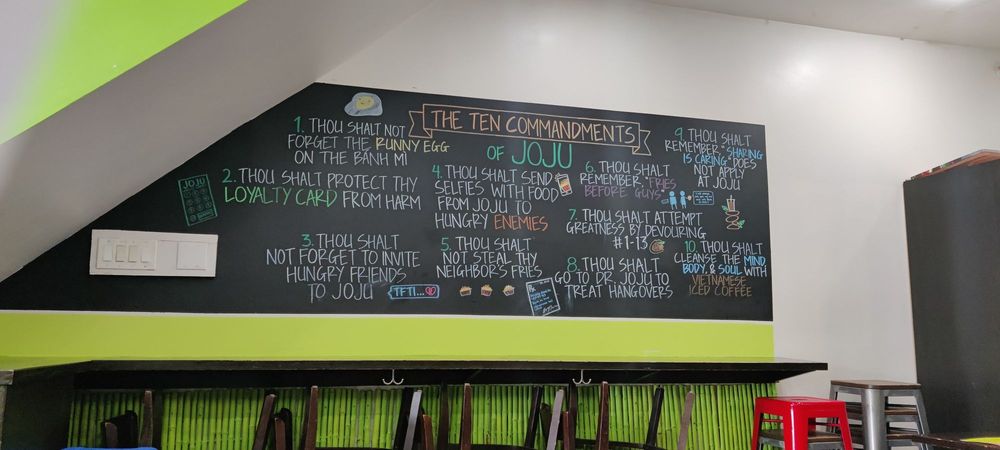 THE TEN COMMANDMENTS
OF JOJU
1. THOU SHALT NOT
FORGET THE RUNNY EGG
ON THE BÁNH MÌ
2. THOU SHALT PROTECT THY
LOYALTY CARD FROM HARM
JOJU
3. THOU SHALT
NOT FORGET TO INVITE
HUNGRY FRIENDS
TO JOJU
TFTI...
4. THOU SHALT SEND
SELFIES WITH FOOD
FROM JOJU TO
HUNGRY ENEMIES
5. THOU SHALT
NOT STEAL THY
NEIGHBOR'S FRIES
6. THOU SHALT
REMEMBER, "FRIES
BEFORE GUYS"
7. THOU SHALT ATTEMPT
GREATNESS BY DEVOURING
#1-13
8. THOU SHALT
GO TO DR. JOJU TO
TREAT HANGOVERS
Rx
9. THOU SHALT
REMEMBER, "SHARING
IS CARING" DOES
NOT APPLY
AT JOJU
10. THOU SHALT
CLEANSE THE MIND,
BODY, & SOUL WITH
VIETNAMESE
ICED COFFEE